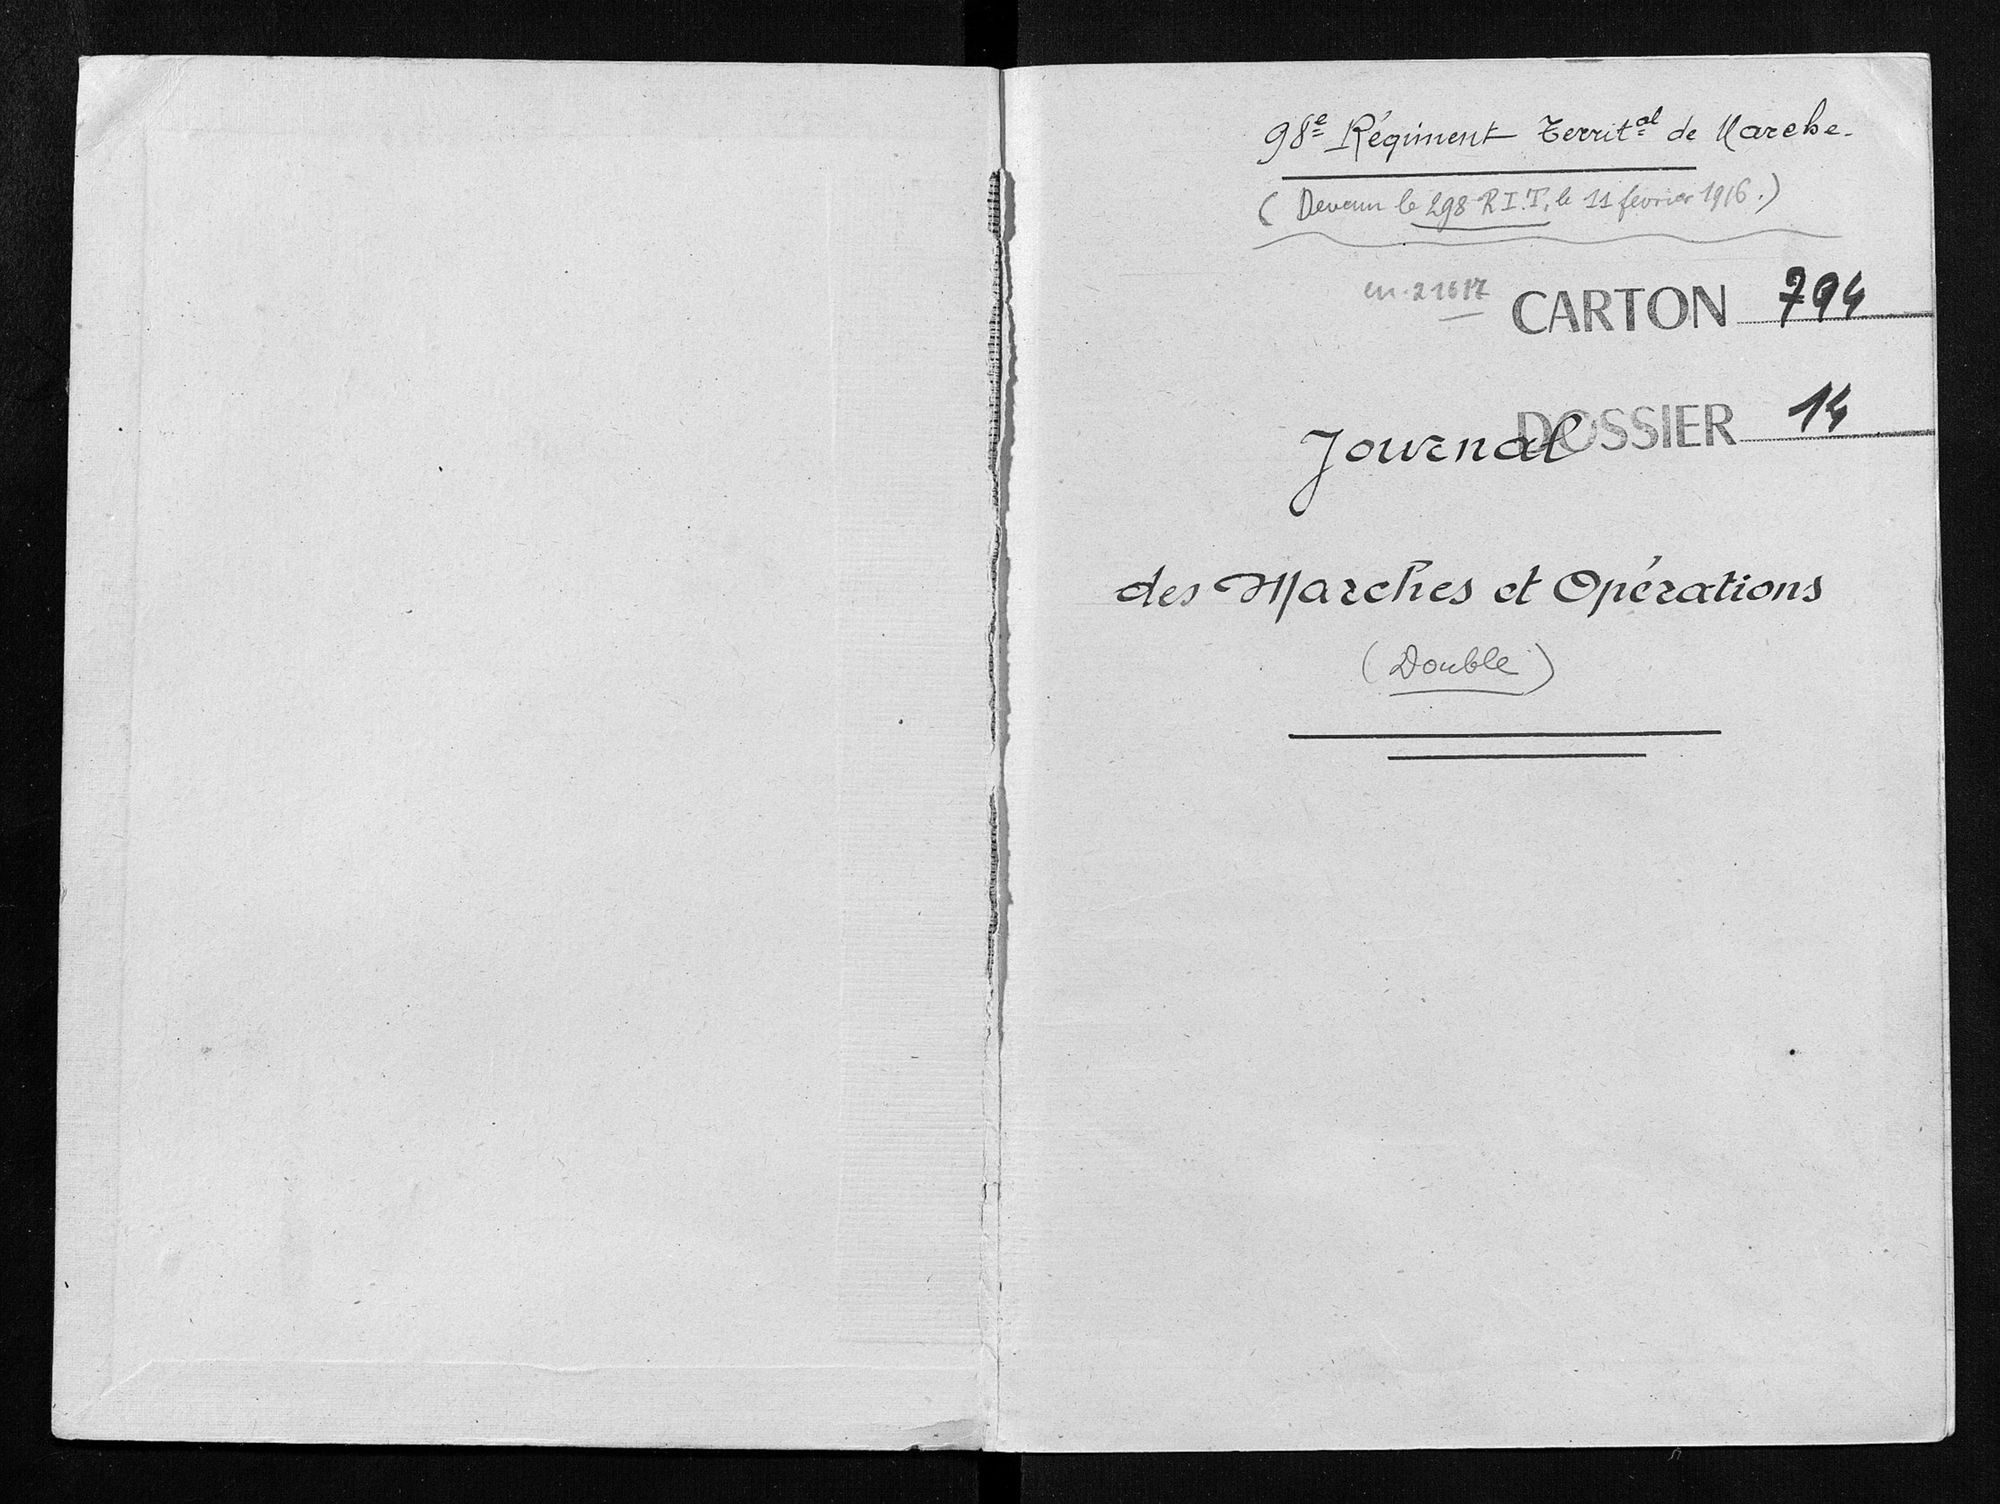 98e Régiment Territal de Marche.
(Devenu le 298 R.I.T. le 11 février 1916.)
CARTON 794
DOSSIER 14
Journal
des Marches et Opérations
(Double)